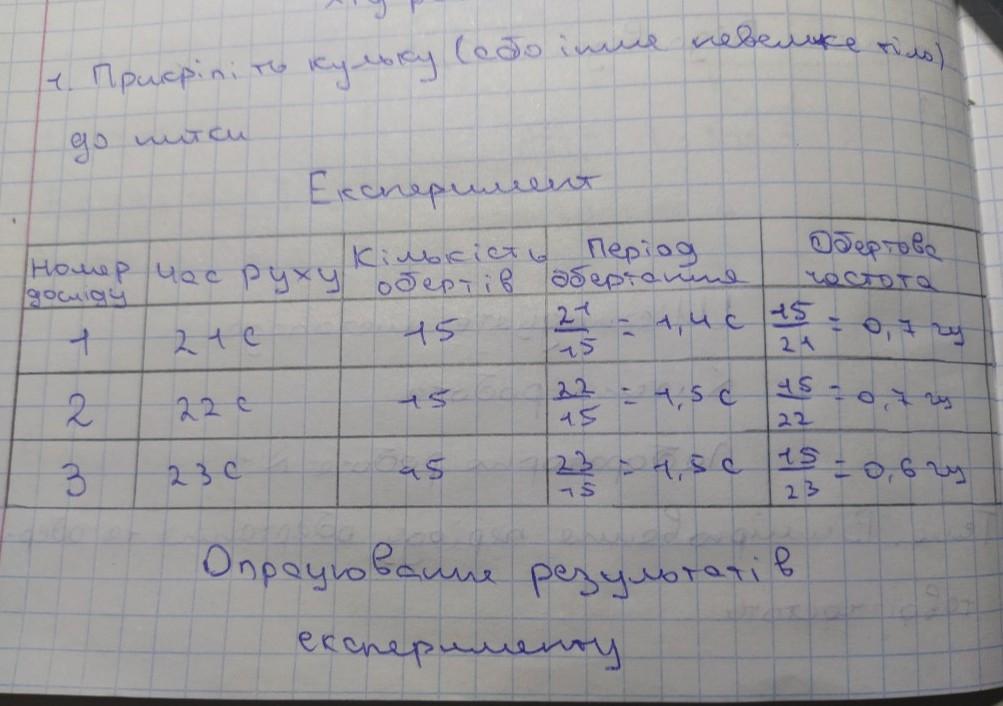 1. Прикріпіть кульку (або інше невелике тіло)
до нитки
Експеримент
Номер досліду | Час руху | Кількість обертів | Період обертання | Обертова частота
1 | 21 с | 15 | 21/15 = 1,4 с | 15/21 = 0,7 гц
2 | 22 с | 15 | 22/15 = 1,5 с | 15/22 = 0,7 гц
3 | 23 с | 15 | 23/15 = 1,5 с | 15/23 = 0,6 гц
Опрацювання результатів
експерименту